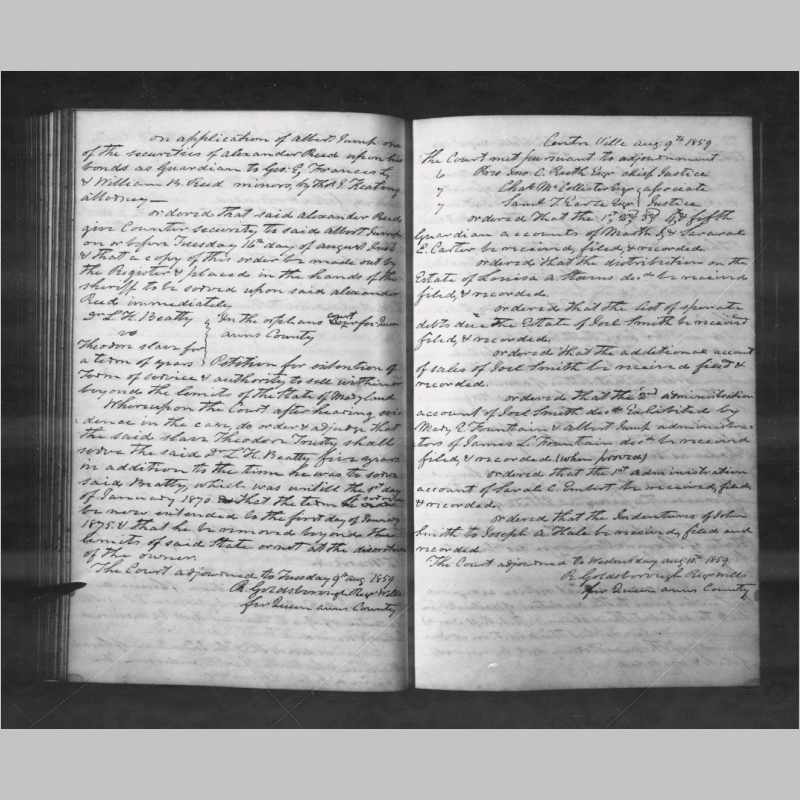 on application of Albert Jump one
of the securities of Alexander Reed upon his
bonds as Guardian to Geo. E, Frances L,
& William H. Reed minors, by Tho. J. Keating
attorney —
ordered that said Alexander Reed
give Counter security to said Albert Jump
on or before Tuesday 16th day of August Inst
& that a copy of this order be made out by
the Register & placed in the hands of the
sheriff to be served upon said Alexander
Reed immediately
Dr L. H. Beatty
vs
Theodore slave for
a term of years
In the orphans court for Queen
anns County
Petition for extention of
Term of service & authority to sell
beyond the limits of the State of Maryland
Whereupon the Court after hearing evi
dence in the case, do order & adjudge that
the said slave Theodore shall
serve the said Dr L. H. Beatty five years
in addition to the time he was to serve
said Beatty, which was untill the 1st day
of January 1870 & that the term of service
be now extended to the first day of January
1875, & that he be removed beyond the
limits of said State or not at the discretion
of the owner.
The Court adjourned to Tuesday 9th aug 1859
R. Goldsborough Regr Wills
for Queen anns County
Centre Ville aug 9th 1859
the Court met pursuant to adjournment
6 Pres Jno. C. Ruth Esqr chief Justice
7 Chas McCollister Esqr associate
7 Saml T. Earle Esqr Justice
ordered that the 1st, 2nd, 3rd, 4th, & fifth
Guardian accounts of Martha & Savarah
E. Carter be received, filed, & recorded
ordered that the distribution on the
Estate of Louisa A. Starns decd be received
filed, & recorded.
ordered that the list of sperate
debts due the Estate of Joel Smith be received
filed, & recorded.
ordered that the additional account
of sales of Joel Smith be received filed &
recorded.
ordered that the 2nd administration
account of Joel Smith decd Exhibited by
Mary E Fountain & Albert Jump administra-
tors of James L. Fountain decd be received
filed, & recorded (when proved)
ordered that the 1st administration
account of Sarah C. Embert be received, filed,
& recorded.
ordered that the Indentures of John
Smith to Joseph A. Hale be received, filed and
recorded
The Court adjourned to Wednesday aug 10th 1859
R. Goldsborough Regr Wills
for Queen anns County